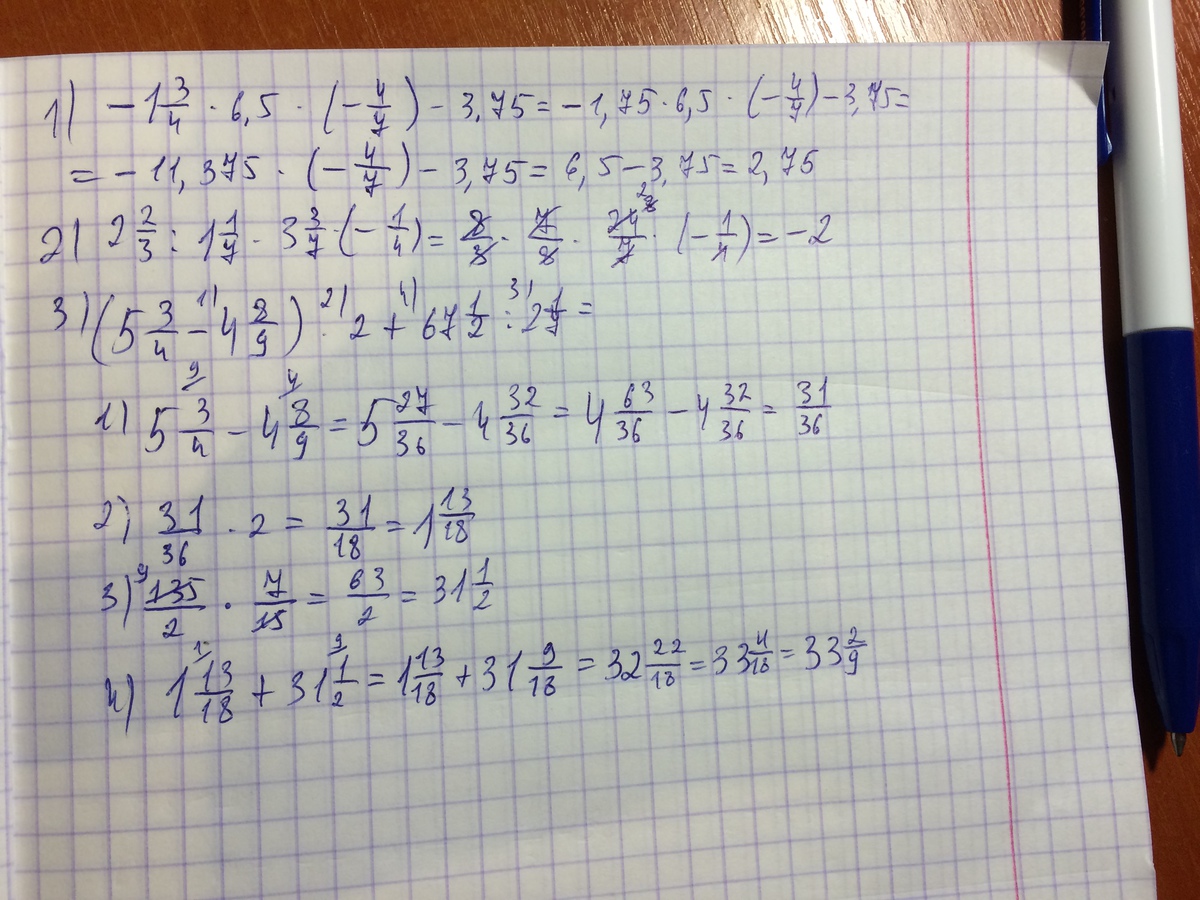 1) -1 3/4 · 6,5 · (-4/7) - 3,75 = -1,75 · 6,5 · (-4/7) - 3,75 =
= -11,375 · (-4/7) - 3,75 = 6,5 - 3,75 = 2,75
2) 2 2/3 : 1 1/7 · 3 3/7 · (-1/4) = 8/3 · 7/8 · 24/7 · (-1/4) = -2
3) (5 3/4 - 4 8/9) · 2 + 67 1/2 : 2 1/7 =
1) 5 3/4 - 4 8/9 = 5 27/36 - 4 32/36 = 4 63/36 - 4 32/36 = 31/36
2) 31/36 · 2 = 31/18 = 1 13/18
3) 135/2 · 7/15 = 63/2 = 31 1/2
4) 1 13/18 + 31 1/2 = 1 13/18 + 31 9/18 = 32 22/18 = 33 4/18 = 33 2/9